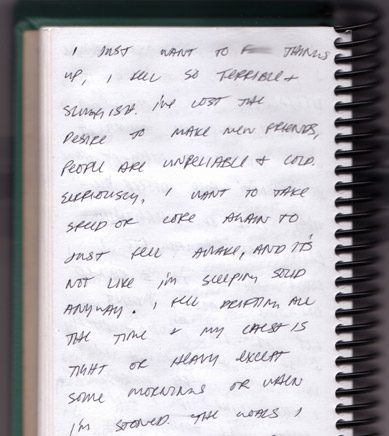 I JUST WANT TO F THINGS
UP, I FEEL SO TERRIBLE &
SLUGGISH. I'VE LOST THE
DESIRE TO MAKE NEW FRIENDS,
PEOPLE ARE UNRELIABLE & COLD.
SERIOUSLY, I WANT TO TAKE
SPEED OR COKE AGAIN TO
JUST FEEL AWAKE, AND IT'S
NOT LIKE I'M SLEEPING SOLID
ANYWAY. I FEEL DRIFTING ALL
THE TIME & MY CHEST IS
TIGHT OR HEAVY EXCEPT
SOME MORNINGS OR WHEN
I'M STONED. THE I